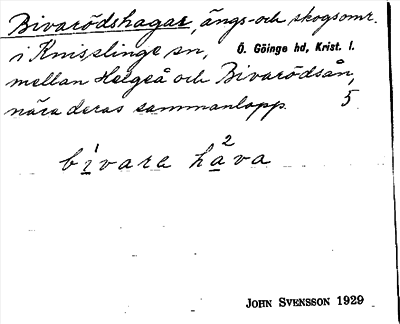 Bivarödshagar, ängs- och skogsomr.
i Knisslinge sn, Ö. Göinge hd, Krist. l.
mellan Helgeå och Bivarödsån,
nära deras sammanlopp. 5
bi¹vare ha²va
JOHN SVENSSON 1929